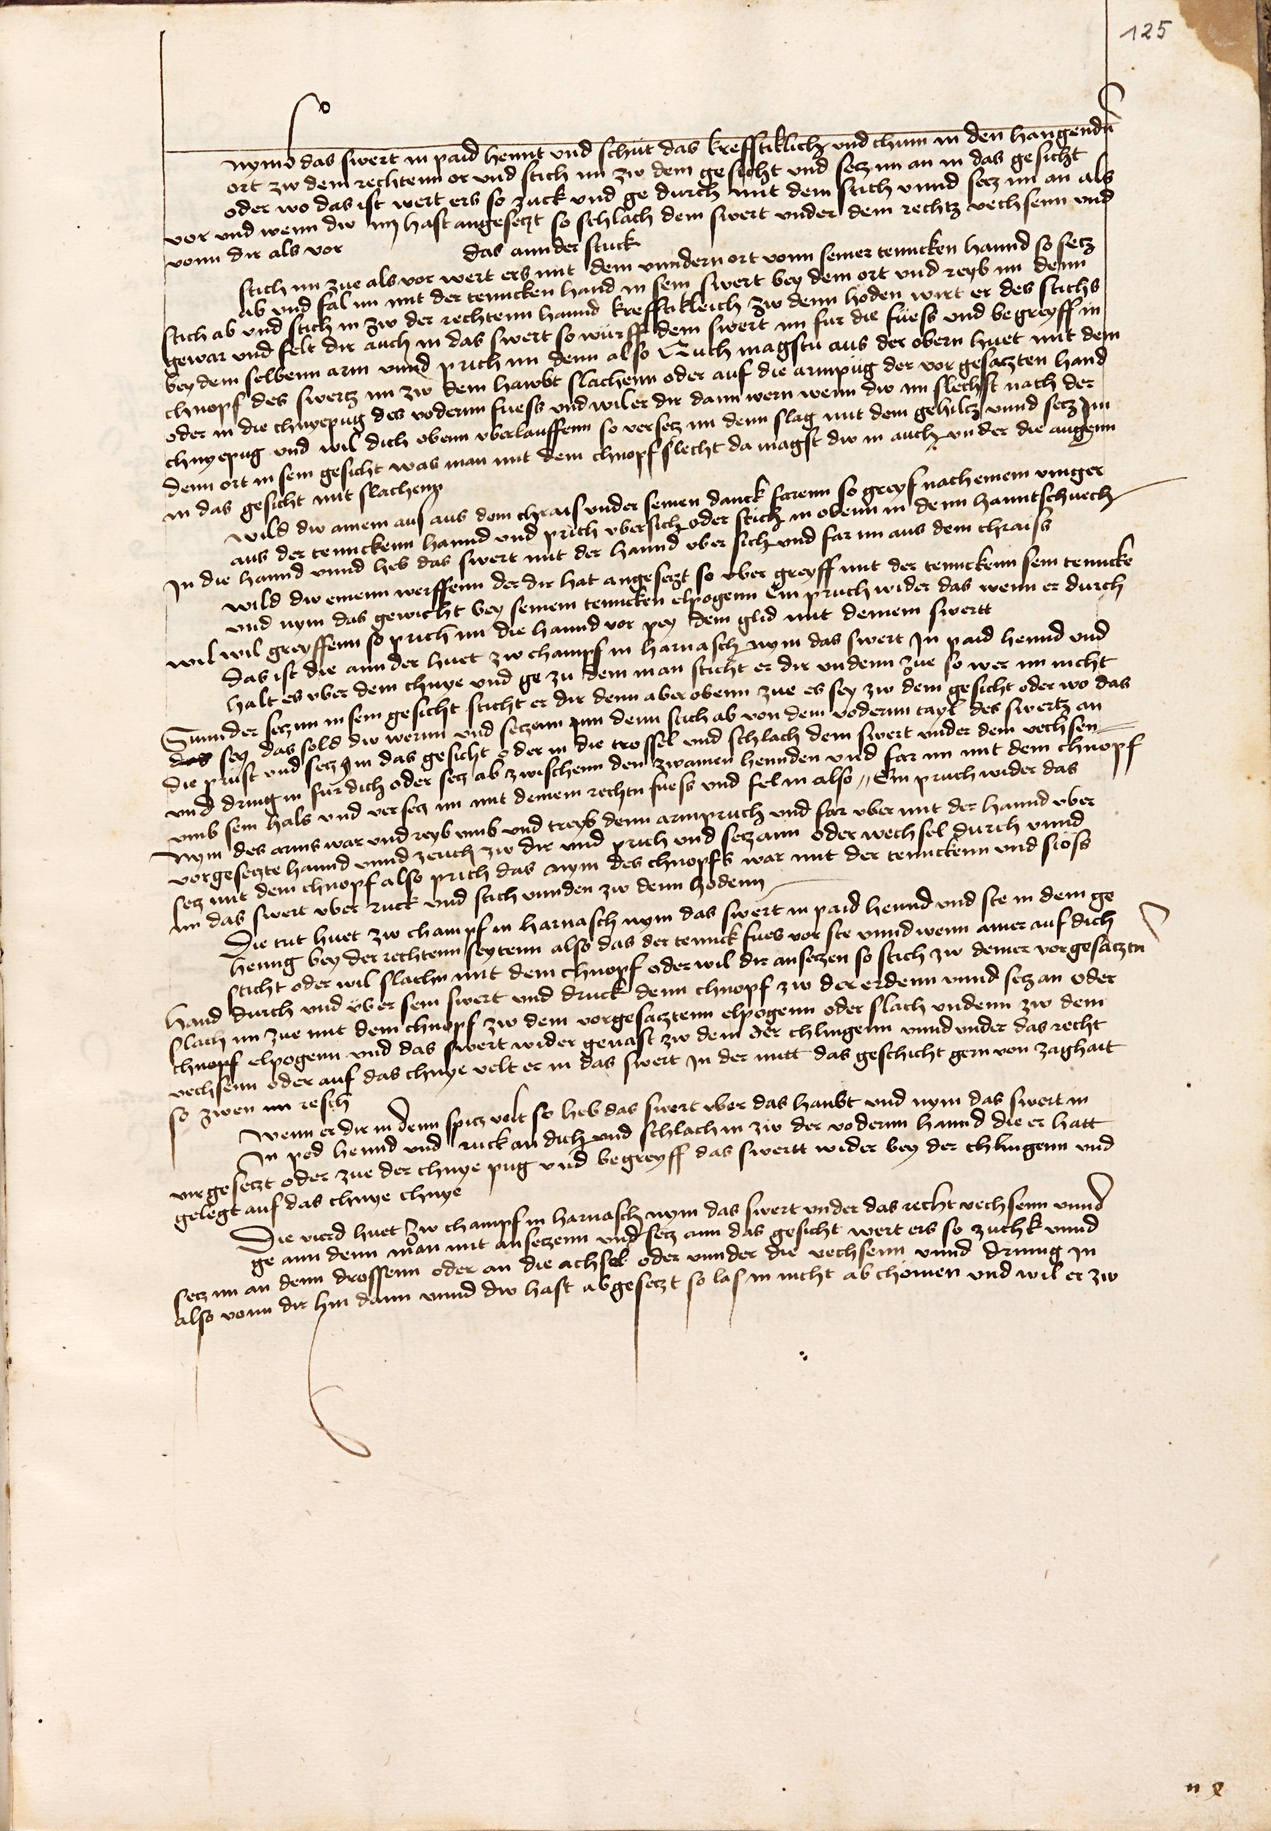 125
So
nymb das swert in paid hennt und schut das krefftiklich und chum in den hangendn
ort zw dem rechtenn or und stich im zw dem gesicht und setz im an in das gesicht
oder wo das ist wert ers so zuck und ge durch mit dem stich unnd setz im an als
vor und wenn dw im hast angesetzt so schlach dem swert under dem rechtz vechsenn und
vonn dir als vor das annder stuck
stich im zue als vor wert ers mit dem vundern ort vonn seiner tenncken hannd so setz
ab und fal im mit der tenncken hand in sein swert bey dem ort und reyb im denn
stich ab und stich in zw der rechtenn hannd krefftikleich zw denn hoden wirt er des stichs
gewar und felt dir auch in das swert so würff dem swert im fur die füess und begreyff in
bey dem selbenn arm unnd prich im denn also Auch magstu aus der obern huet mit dem
chnopf des swertz im zw dem hawbt slachenn oder auf die armpüg der vor gesatzten hand
oder in die chnyepug des vodernn fuess und wil er dir dann wern wenn dw im slechst nach der
chnyepug und wil dich obenn uberlauffenn so versetz im denn slag mit dem gehiltz unnd setz Im
denn ort in sein gesicht was man mit dem chnopf slecht da magst dw in auch under die augenn
in das gesicht mit slachenn
Wild dw ainem aus aus dem chrais under seinen danck farenn so greyf nach einem vinger
aus der tennckenn hannd und prich ubersich oder stich in obenn in denn hanntschuech
In die hannd unnd heb das swert mit der hannd uber sich und far im aus dem chraiss
Wild dw einenn werffenn der dir hat angesetzt so uber greyff mit der tennckenn sein tenncke
und nym das gewicht bey seinem tenncken elpogenn Ein pruch wider das wenn er durch
wil wil greyffenn so prich im die hannd vor pey dem glid mit deinem swertt
Das ist die annder huet zw champf in harnasch nym das swert In paid hennd und
halt es uber dem chnye und ge zu dem man sticht er dir undenn zue so wer im nicht
Sunnder setz im in sein gesicht sticht er dir denn aber obenn zue es sey zw dem gesicht oder wo das
das sey das sold dw wernn und setzenn im denn stich ab von dem vodernn tayl des swertz an
die prust und setz im das gesicht oder in die trossel und schlach dem swert under dem vechsen
und dring in für dich oder setz ab zwischenn den zwainen hennden und far im mit dem chnopf
umb sein hals und versetz im mit deinem rechtn fuess und fel in also Ein pruch wider das
Nym des arms war und reyb umb und treyb denn armpruch und far uber mit der hannd uber
vorgesetzte hannd unnd zeuch zw dir und prich und setz ann oder wechsel durch unnd
setz mit dem chnopf also prich das nym des chnopfs war mit der tennckenn und stöss
im das swert uber ruck und stich unnden zw denn hodenn
Die trit huet zw champf in harnasch nym das swert in paid hennd und ste in dem ge
heng bey der rechtenn seytenn also das der tennck fues vor ste unnd wenn ainer auf dich
sticht oder wil slachn mit dem chnopf oder wil dir ansetzen so stich zw deiner vorgesatztn
hand durch und über sein swert und druck denn chnopf zw der erdenn unnd setz an oder
slach im zue mit dem chnopf zw dem vorgesatztenn elpogenn oder slach undenn zw dem
chnopf elpogenn und das swert wider genast zw dem der chlingenn unnd under das recht
vechsenn oder auf das chnye velt er in das swert In der mitt das geschicht gern von zaghait
so zwen im resch
Wenn er dir in denn spitz velt so heb das swert uber das haubt und nym das swert in
In ped hennd und ruck an dich und schlach in zw der vodernn hannd die er hatt
vurgesetzt oder zue der chnye pug und begreyff das swertt wider bey der chlingenn und
gelegt auf das chnye chnye
Die vierd huet zw champf in harnasch nym das swert under das recht vechsenn unnd
ge ann denn man mit ansetzenn und setz ann das gesicht wert ers so zuchk unnd
setz im an denn drossenn oder an die achsel oder unnder die vechsenn unnd drinng In
also vonn dir hin dann unnd dw hast abgesetzt so las in nicht ab chomen und wil er zw